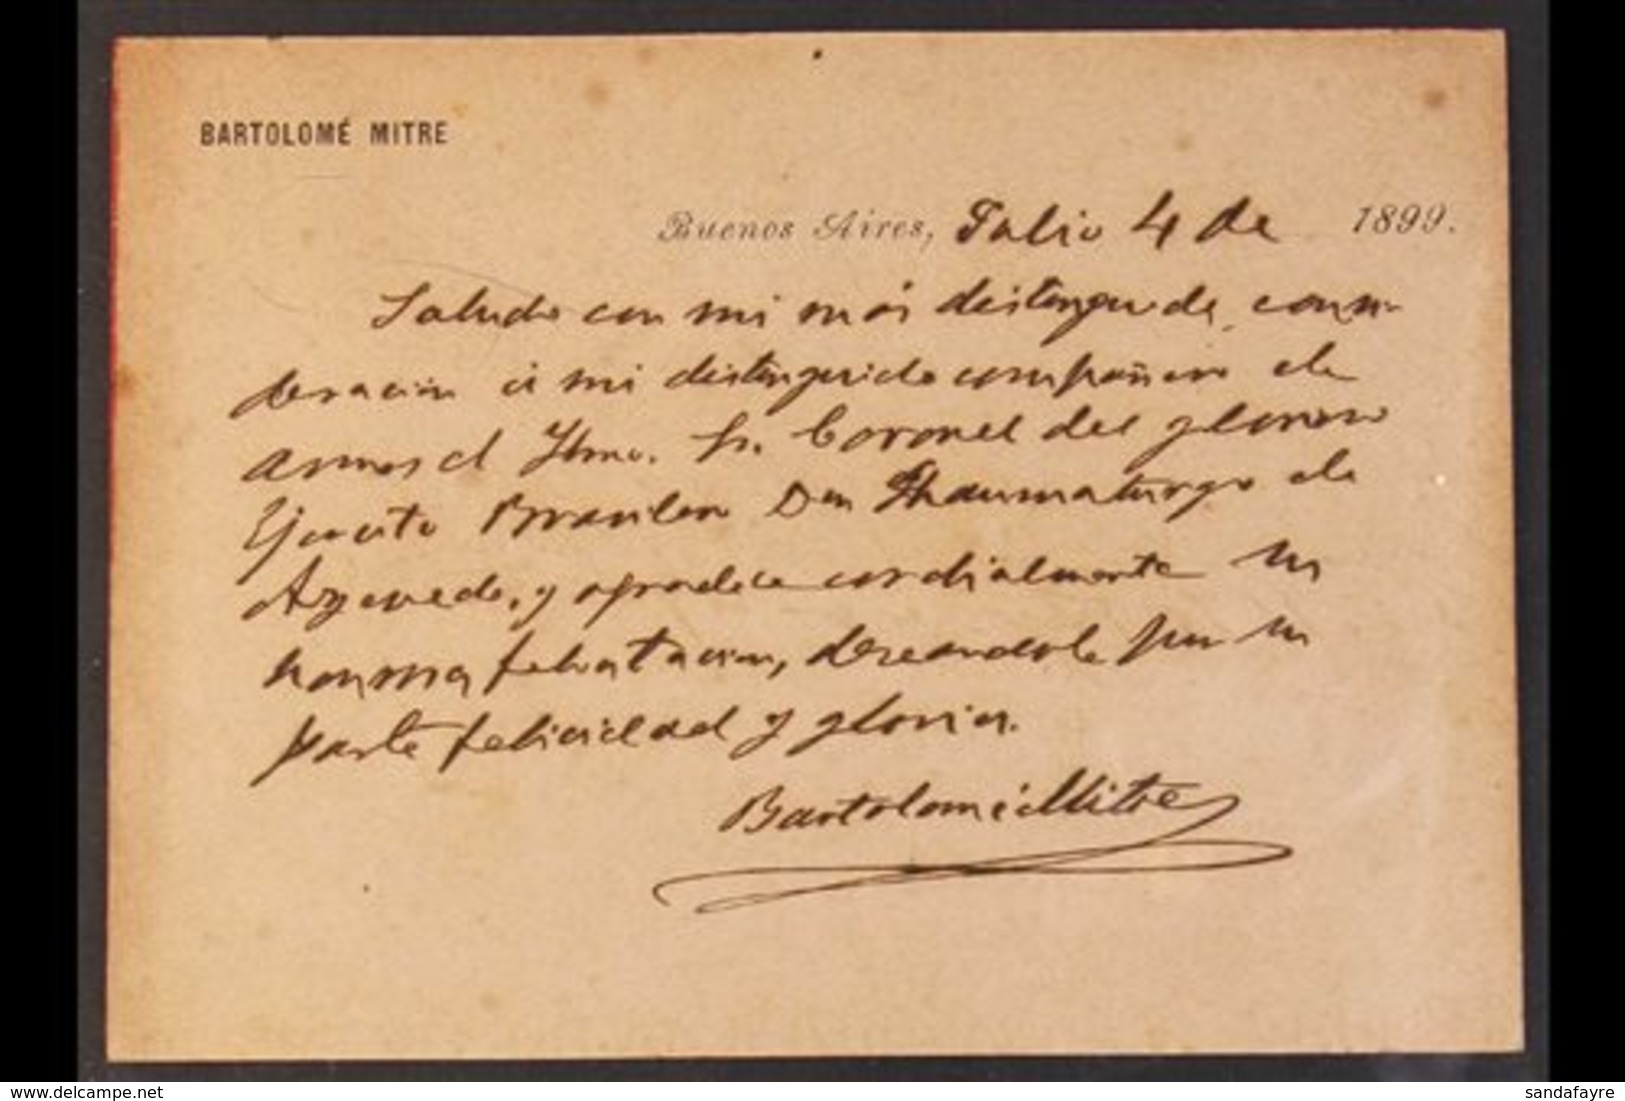 BARTOLOMÉ MITRE
Buenos Aires, Julio 4 de 1899.
Saludo con mi más distinguida consi-
deración á mi distinguido compañero de
armas el Ilmo. Sr. Coronel del glorioso
Ejercito Brasilero Don Thaumaturgo de
Azevedo, y agradece cordialmente su
honrosa felicitacion, deseandole por su
parte felicidad y gloria.
Bartolomé Mitre
delcampe.net
sandafayre